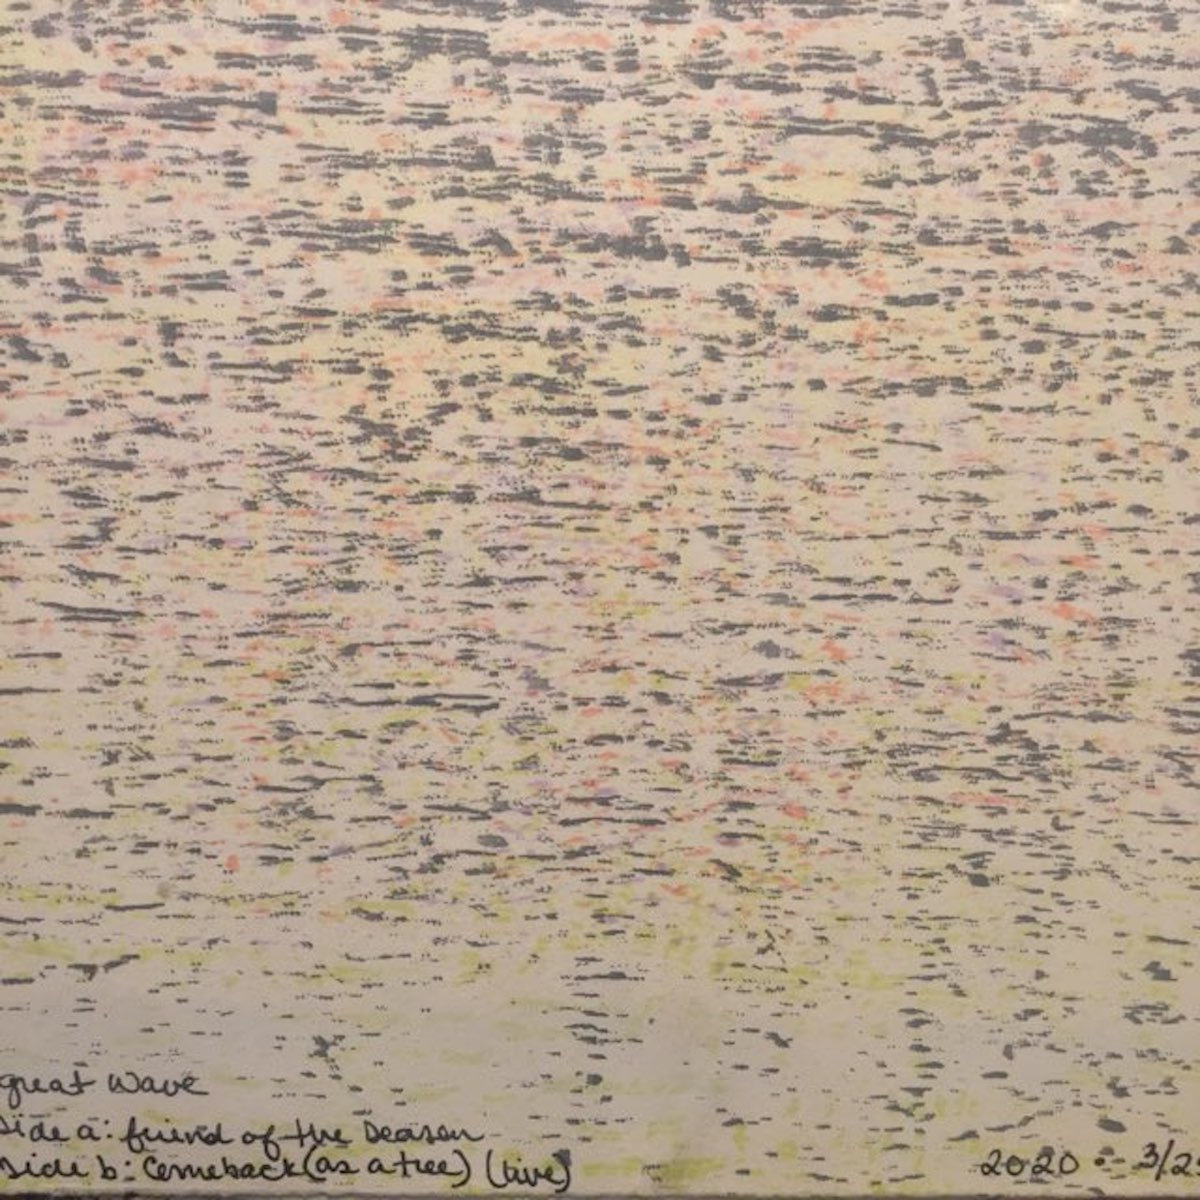 great wave
side a: friend of the season
side b: Comeback (as a tree) (live)
2020 - 3/25